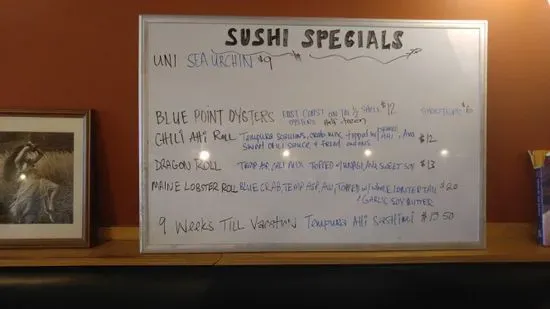 SUSHI SPECIALS
UNI SEA URCHIN $9
BLUE POINT OYSTERS EAST COAST OYSTERS ON THE ½ SHELL $12
CHILI AHI ROLL TEMPURA SCALLIONS, CRAB MIX, TOPPED W/ AHI, AVO
SWEET CHILI SAUCE & FRIED ONIONS $12
DRAGON ROLL TEMP ASP, CALI MIX TOPPED W/ UNAGI, AVO, SWEET SOY $13
MAINE LOBSTER ROLL BLUE CRAB, TEMP ASP, AVO, TOPPED W/ WHOLE LOBSTER TAIL $20
& GARLIC SOY BUTTER
9 Weeks Till Vacation Tempura Ahi Sashimi $13.50